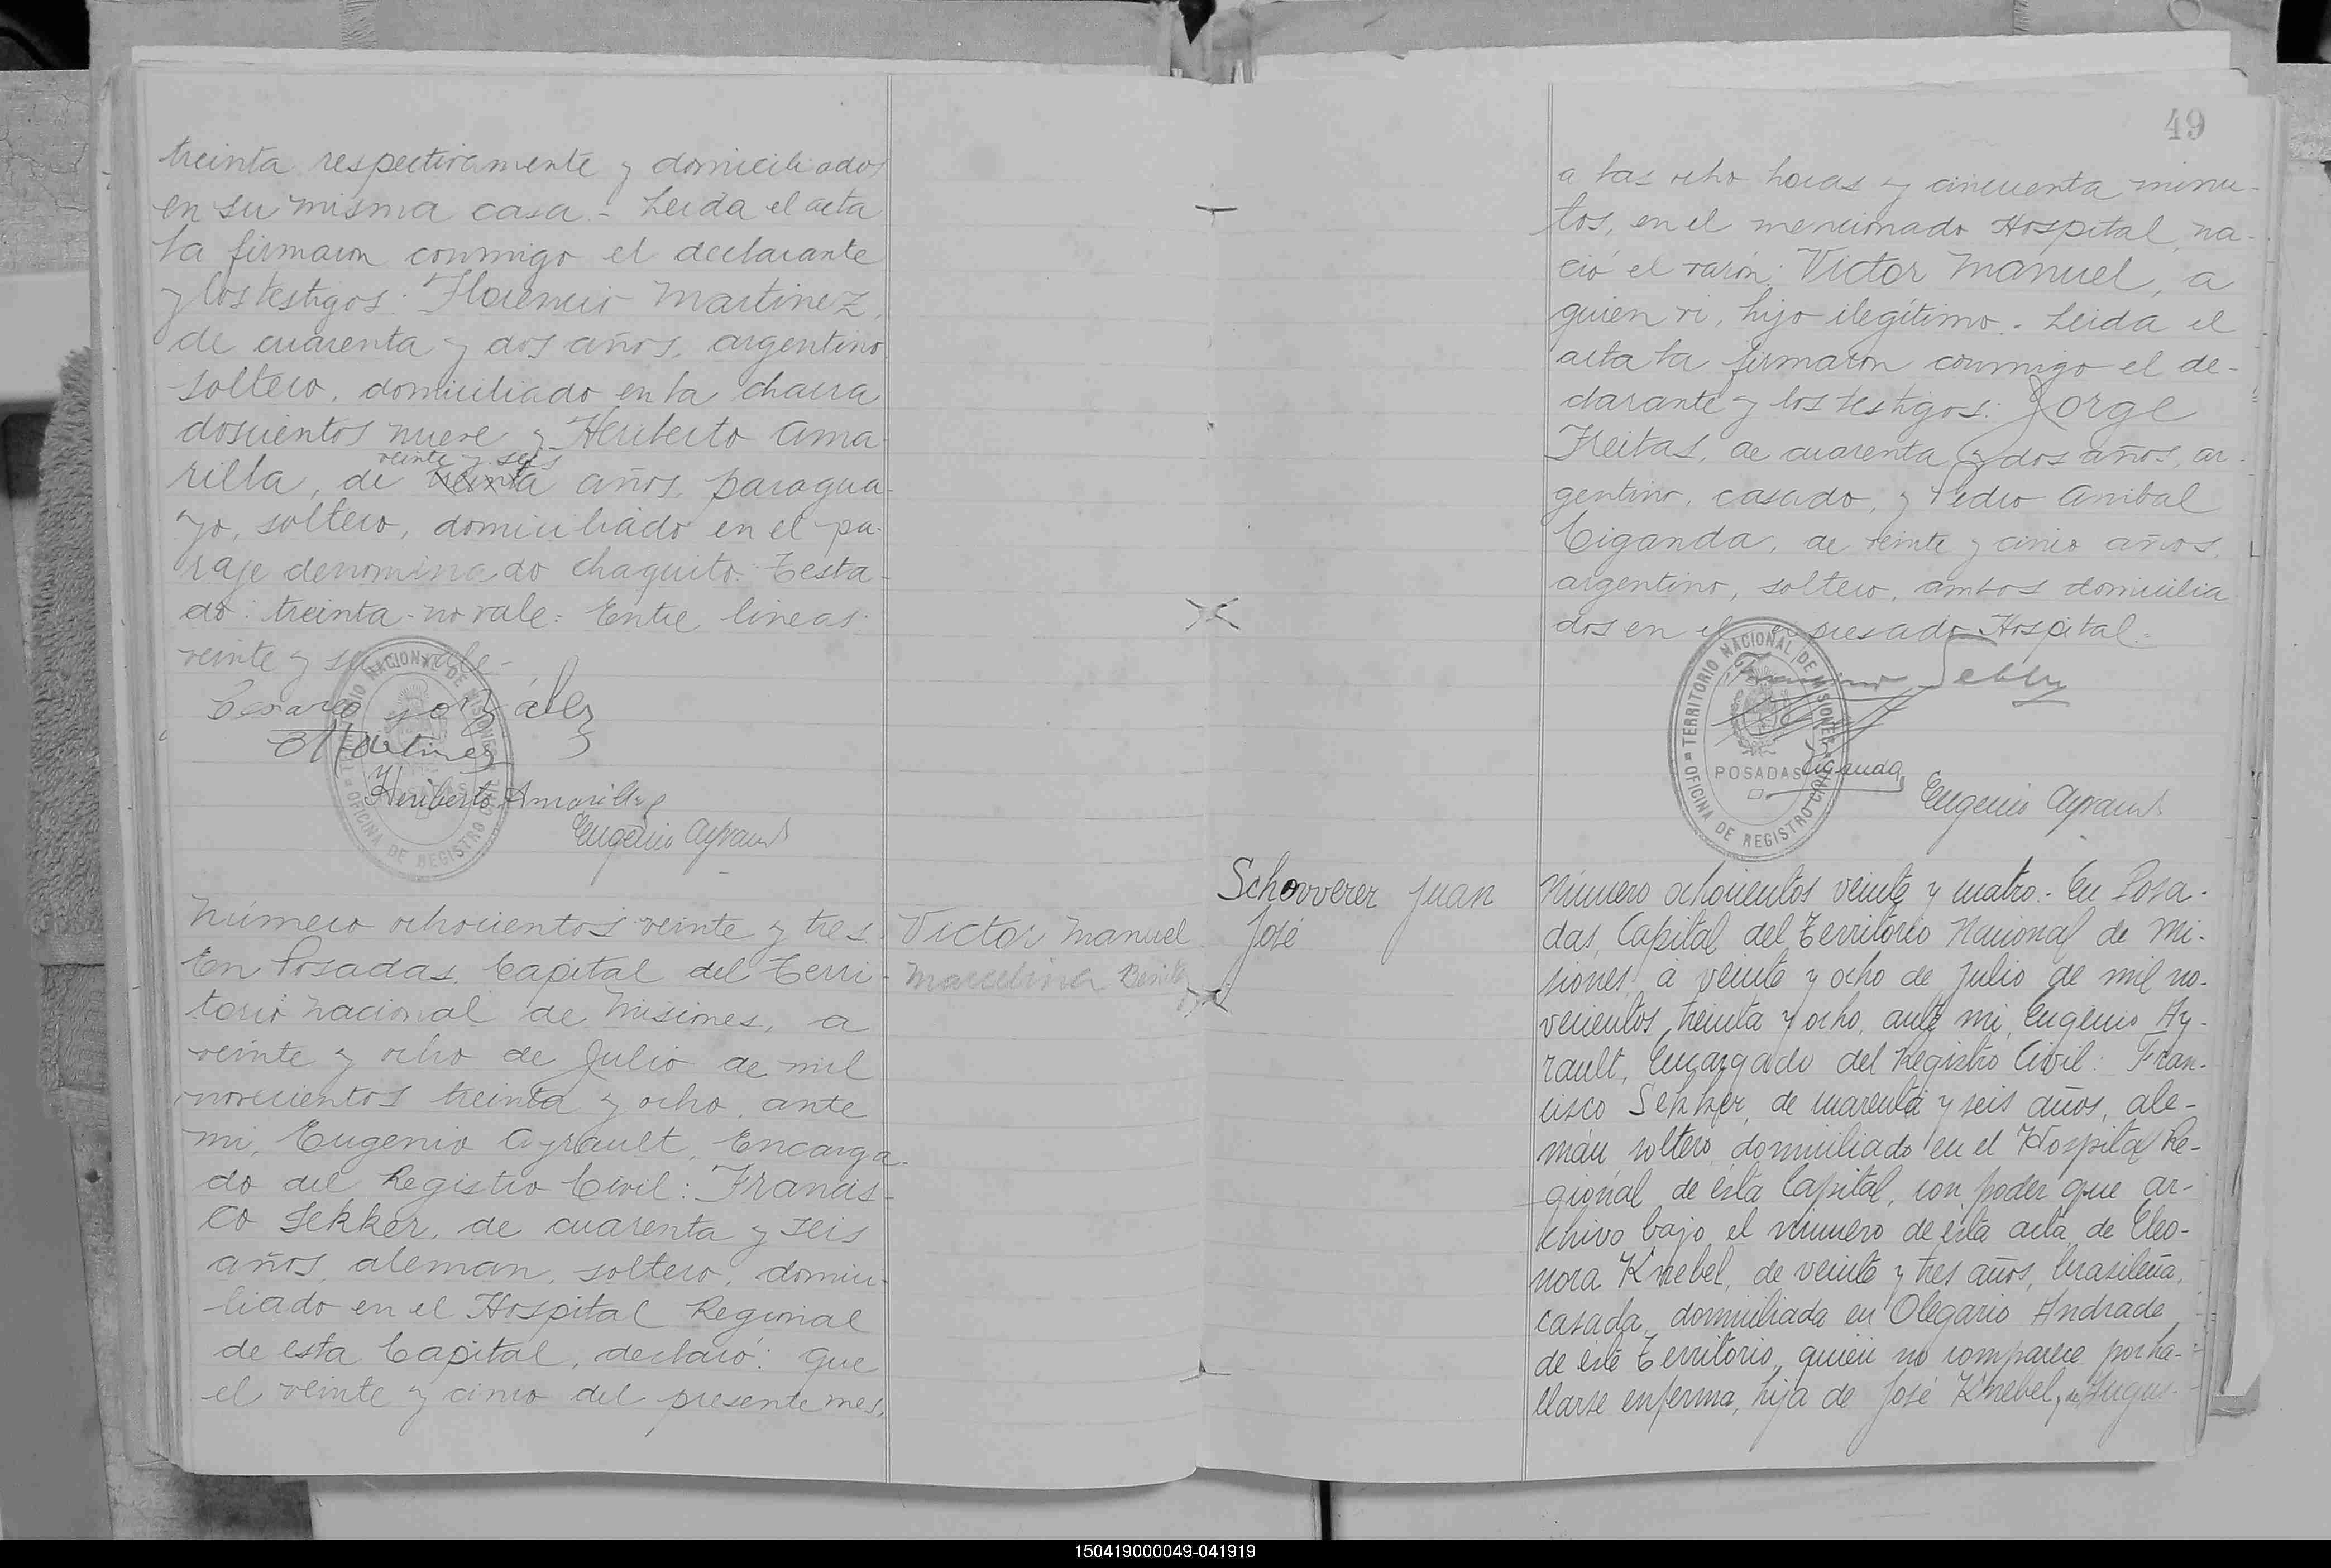 treinta respectivamente y domiciliados
en su misma casa. - Leida el acta
la firmaron conmigo el declarante
y los testigos: Florencio Martinez,
de cuarenta y dos años, argentino,
soltero, domiciliado en la chacra
doscientos nueve y Heriberto Ama-
veinte y seis
rilla, de treinta años, paragua-
yo, soltero, domiciliado en el pa-
raje denominado Chaquito. Testa-
do: treinta - no vale: Entre lineas:
veinte y seis vale -
González
Martinez
Heriberto Amarilla
Eugenio Ayrault
TERRITORIO NACIONAL DE MISIONES
OFICINA DE REGISTRO CIVIL
POSADAS
Número ochocientos veinte y tres
En Posadas, Capital del Terri-
torio Nacional de Misiones, a
veinte y ocho de Julio de mil
novecientos treinta y ocho, ante
mi, Eugenio Ayrault, Encarga-
do del Registro Civil: Francis-
co Sekker, de cuarenta y seis
años, aleman, soltero, domici-
liado en el Hospital Regional
de esta Capital, declaró: Que
el veinte y cinco del presente mes,
Victor Manuel
Marcelina Benitez
49
a las ocho horas y cincuenta minu-
tos, en el mencionado Hospital, na-
ció el varón: Victor Manuel, a
quien vi, hijo ilegítimo. - Leida el
acta la firmaron conmigo el de-
clarante y los testigos: Jorge
Freitas, de cuarenta y dos años, ar-
gentino, casado, y Pedro Anibal
Ciganda, de veinte y cinco años,
argentino, soltero, ambos domicilia
dos en el expresado Hospital =
TERRITORIO NACIONAL DE MISIONES
OFICINA DE REGISTRO CIVIL
POSADAS
Ciganda
Eugenio Ayrault
Schovverer Juan
José
Número ochocientos veinte y cuatro. - En Posa-
das, Capital del Territorio Nacional de Mi-
siones, a veinte y ocho de Julio de mil no-
vecientos treinta y ocho, ante mi, Eugenio Ay-
rault, Encargado del Registro Civil: Fran-
cisco Sekker, de cuarenta y seis años, ale-
mán, soltero, domiciliado en el Hospital Re-
gional de ésta Capital, con poder que ar-
chivo bajo el número de ésta acta, de Eleo-
nora Knebel, de veinte y tres años, brasileña,
casada, domiciliada en Olegario Andrade
de éste Territorio, quien no comparece por ha-
llarse enferma, hija de José Knebel, y de Augus-
150419000049-041919